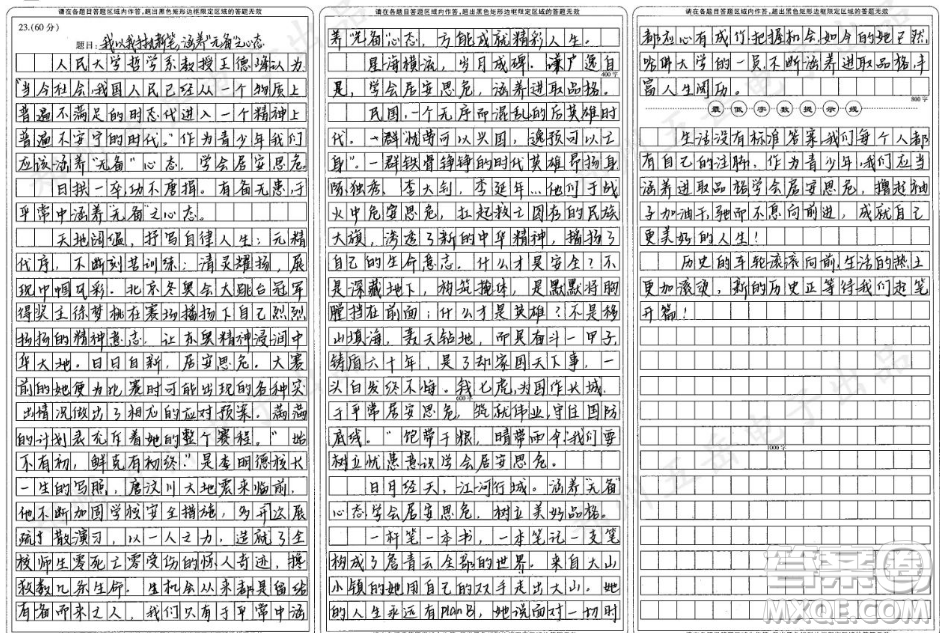 请在各题目答题区域内作答,超出黑色矩形边框限定区域的答题无效
23.(60分)
题目:我以我手执新笔,涵养“无备”之心态
人民大学哲学系教授王德峰认为
“当今社会,我国人民已经从一个物质上
普遍不满足的时态代进入一个精神上
普遍不安宁的时代。”作为青少年我们
应该涵养“无备”心态,学会居安思危。
日拱一卒功不唐捐。有备无患,于
平常中涵养“无备”之心态。
天地阔蕴,抒写自律人生;元精
代序,不断刻苦训练;清灵耀扬,展
现巾帼风彩。北京冬奥会大跳台冠军
得奖主徐梦桃在赛场播扬下自己烈烈
扬扬的精神意志,让东奥精神浸润中
华大地。日日自新,居安思危。大赛
前的她便为比赛时可能出现的各种突
出情况做出了相应的应对预案。满满
的计划表充斥着她的整个赛程。“始
不有初,鲜克有初终。”是李明德校长
一生的写照,唐汶川大地震来临前,
他不断加固学校安全措施,多开次展
疏散演习,以一人之力,造就了全
校师生零死亡零受伤的惊人奇迹,挽
救数几条生命。生机会从来都是留给
有备而来之人,我们只有于平常中涵
请在各题目答题区域内作答,超出黑色矩形边框限定区域的答题无效
养“无备”心态,方能成就精彩人生。
星海横流,岁月成碑。谦卢逸自
400字
是,学会居安思危,涵养进取品格。
民国,一个无序而混乱的后英雄时
代。一群“忧劳可以兴国,逸豫可以亡
身”。一群铁骨铮铮的时代英雄昂扬身
陈独秀、李大钊,李延年…他们于战
火中危安思危,扛起救亡图存的民族
大旗,渗透了新的中华精神,播扬了
自己的生命意志。什么才是安全?不
是深藏地下,构筑掩体,是默默将胸
膛挡在前面;什么才是英雄?不是移
山填海,轰天钻地,而是奋斗一甲子
铸盾六十年,是了却家国天下事,一
头白发终不悔。钱七虎,为国作长城,
600字
于平常居安思危,筑就伟业,守住国防
底线。“饱带干粮,晴带雨伞”我们要
树立忧患意识学会居安思危。
日月经天,江河行城。涵养“无备”
心态,学会居安思危,树立美好品格。
一杆笔一本书,一本笔记一支笔
构成了詹青云全部的世界。来自大山
小镇的她用自己的双手走出大山。她
的人生永远有planB,她说面对一切时
请在各题目答题区域内作答,超出黑色矩形边框限定区域的答题无效
都应心有成竹把握机会,如今的她已然
哈佛大学的一员,不断涵养进取品格,丰
富人生阅历。
800字
最低字数提示线
生活没有标准答案,我们每个人都
有自己的注脚。作为青少年,我们应当
涵养进取品格学会居安思危,撸起袖
子加油干,驰而不息向前进,成就自己
更美好的人生!
历史的车轮滚滚向前,生活的热土
更加滚烫,新的历史正等待我们起笔
开篇!
1000字
答案圈
MXQE.COM